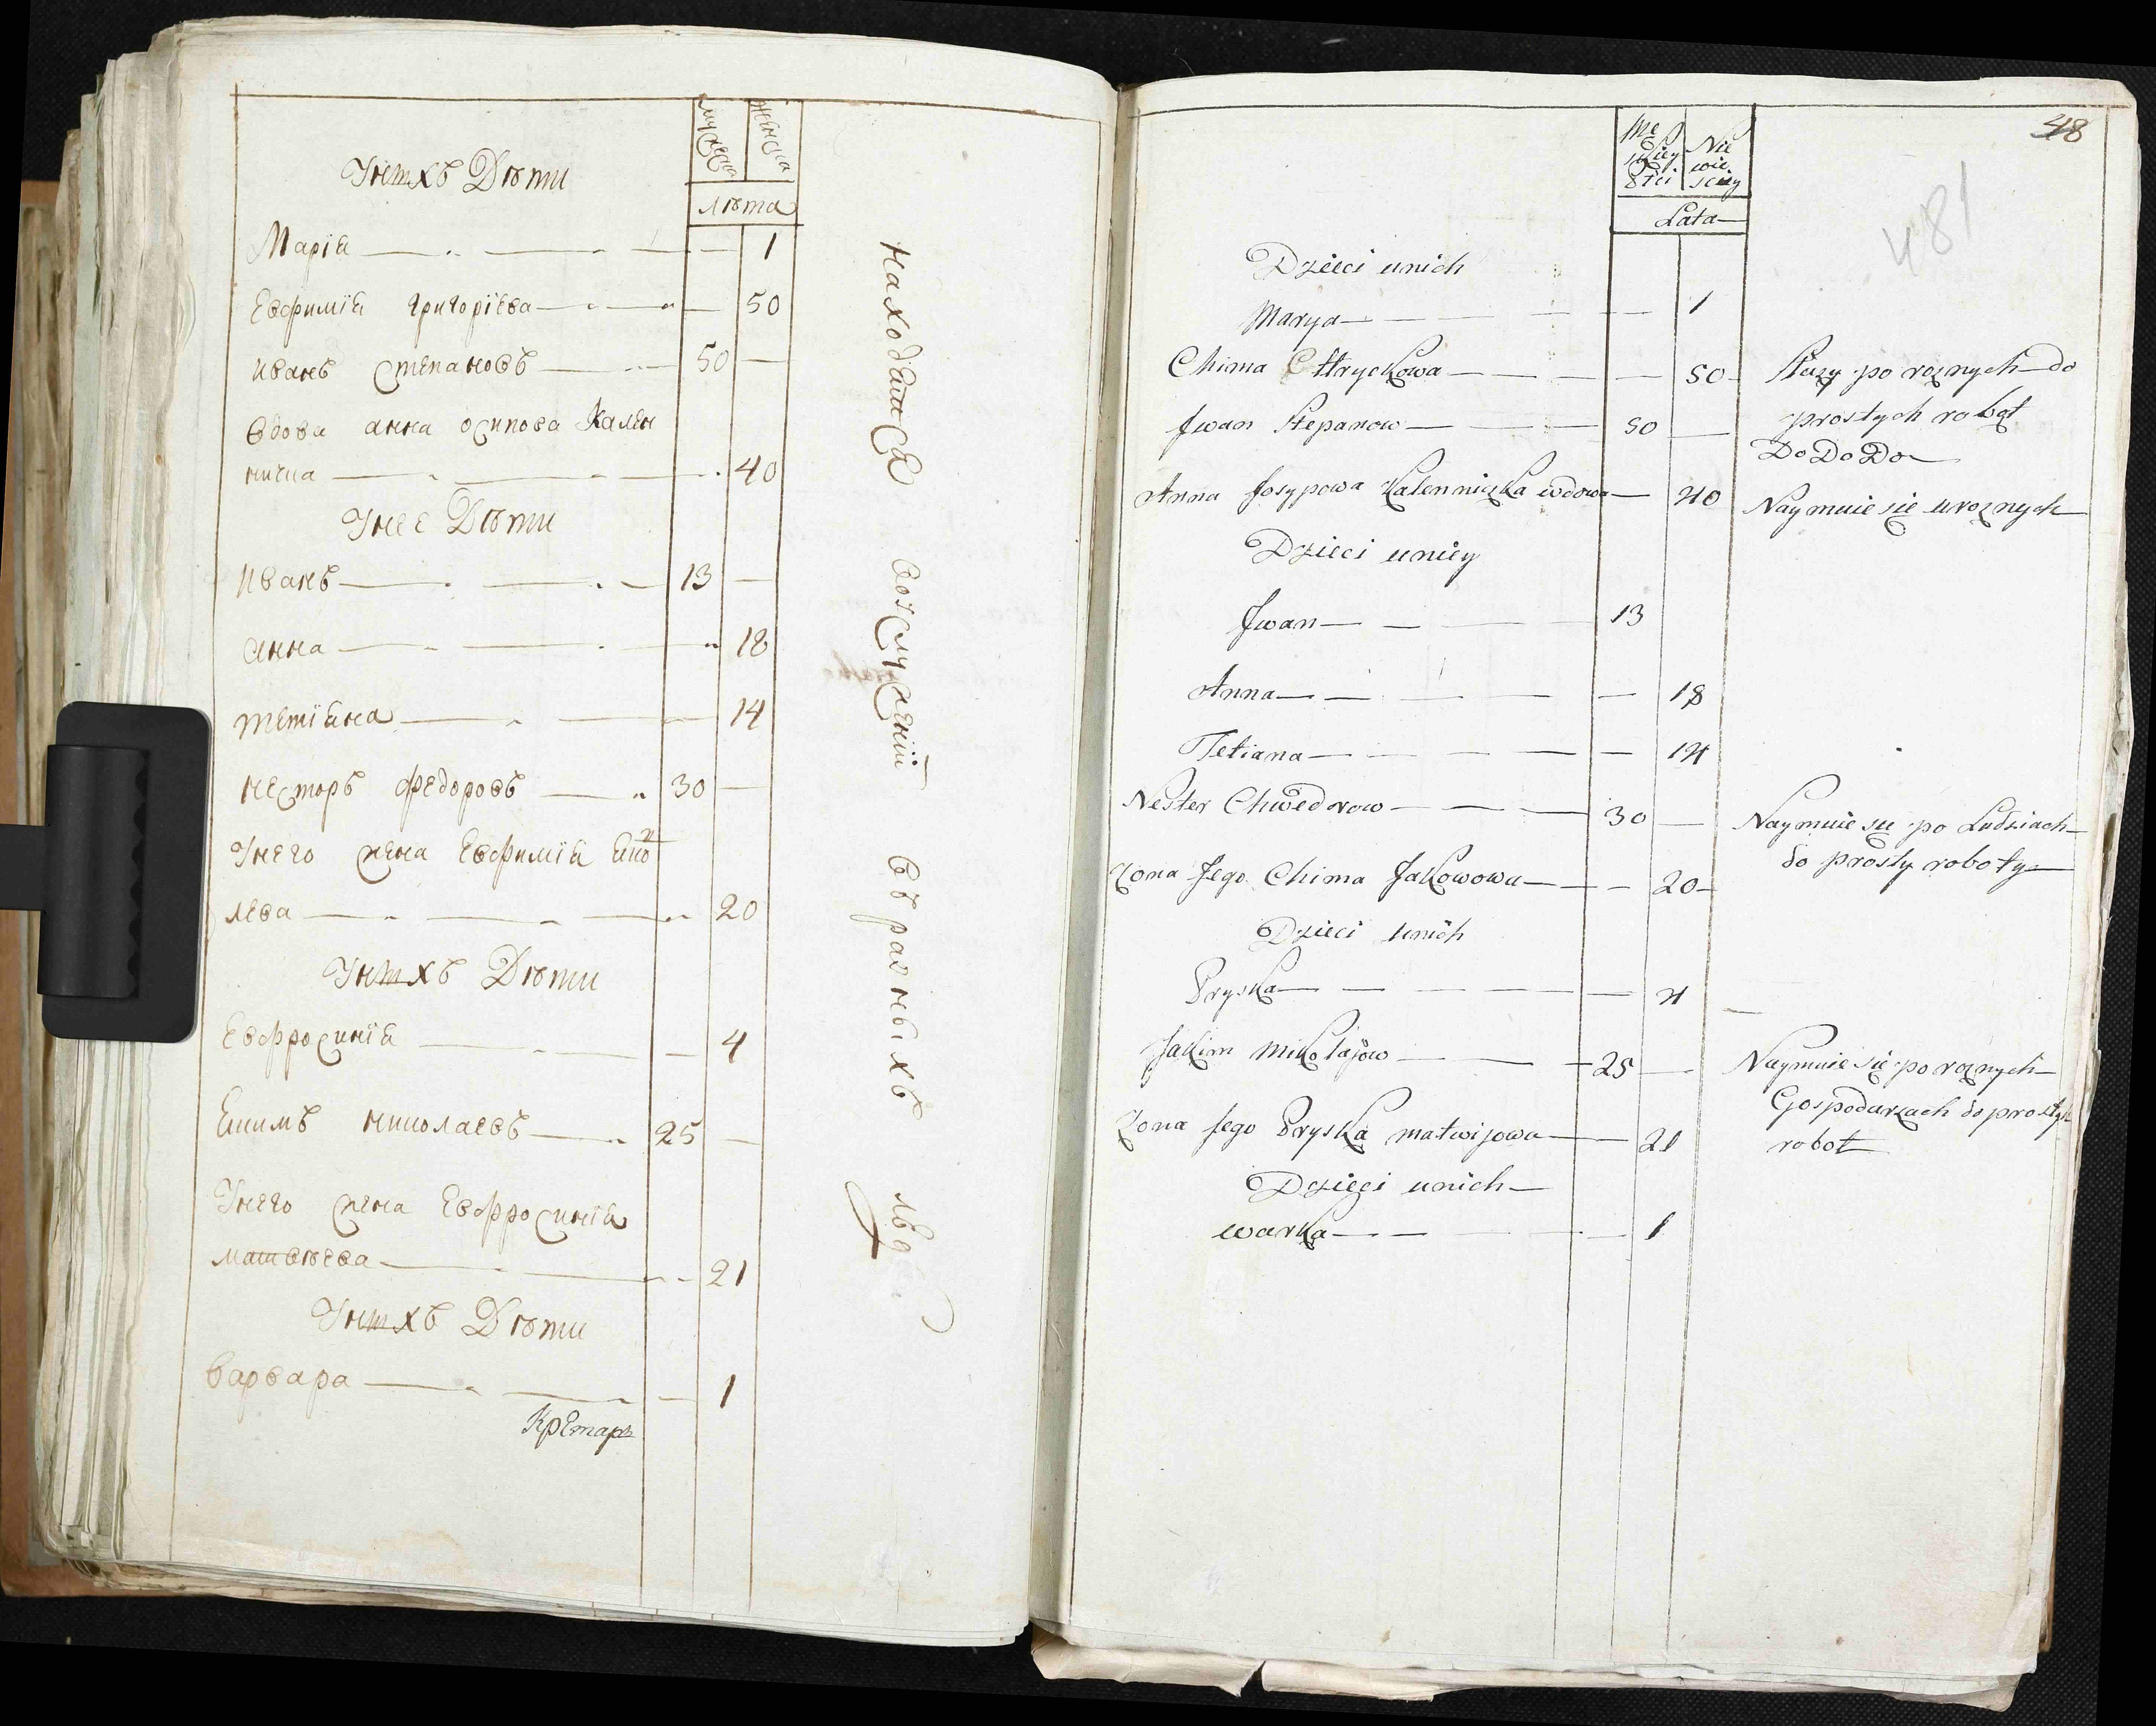 мужеска женска
лѣта
Унихъ Дѣти
Марія 1
Евфимія григоріева 50
иванъ степановъ 50
вдова анна осипова Кален
ничка 40
Унее Дѣти
иванъ 13
анна 18
тетіяна 14
несторъ федоровъ 30
Унего жена Евфимія яко
лева 20
Унихъ Дѣти
Евфросинія 4
Екимъ николаевъ 25
Унего жена Евфросинія
матвѣева 21
Унихъ Дѣти
варвара 1
находятся вослуженіи въ разныхъ
48
481
Mę
skiey
Płci
Nie
wie
sciey
Lata
Dzieci unich
Marya 1
Chima Hryckowa 50 Służy po roznych do
prostych robot
Jwan Stepanow 50 Do Do Do
Anna Josypowa Kalenniczka wdowa 40 Naymuie się uroznych
Dzieci uniey
Jwan 13
Anna 18
Tetiana 14
Nester Chwedorow 30 Naymuie się po Ludziach
do prosty roboty
Zona Jego Chima Jakowowa 20
Dzieci unich
Pryska 4
Jakim Mikołajow 25 Naymuie się po roznych
Gospodarzach do prostych
robot
Zona Jego Pryska matwijowa 21
Dzieci unich
warka 1